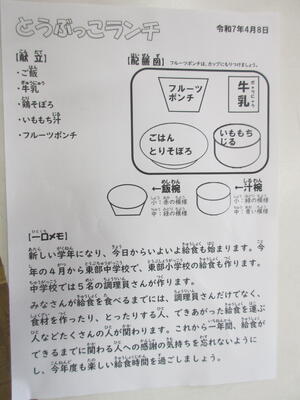 とうぶっこランチ
令和7年4月8日
[献立]
・ご飯
・牛乳
・鶏そぼろ
・いももち汁
・フルーツポンチ
[配膳図] フルーツポンチは、カップにもりつけましょう。
フルーツ
ポンチ
牛乳
ごはん
とりそぼろ
いももち
じる
←飯椀
小：赤の模様
中：緑の模様
←汁椀
小：緑の模様
中：青い模様
[一口メモ]
新しい学年になり、今日からいよいよ給食も始まります。今
年の４月から東部中学校で、東部小学校の給食も作ります。
中学校では５名の調理員さんが作ります。
みなさんが給食を食べるまでには、調理員さんだけでなく、
食材を作ったり、とったりする人、できあがった給食を運ぶ
人などたくさんの人が関わります。これから一年間、給食が
できるまでに関わる人への感謝の気持ちを忘れないように
し、今年度も楽しい給食時間を過ごしましょう。